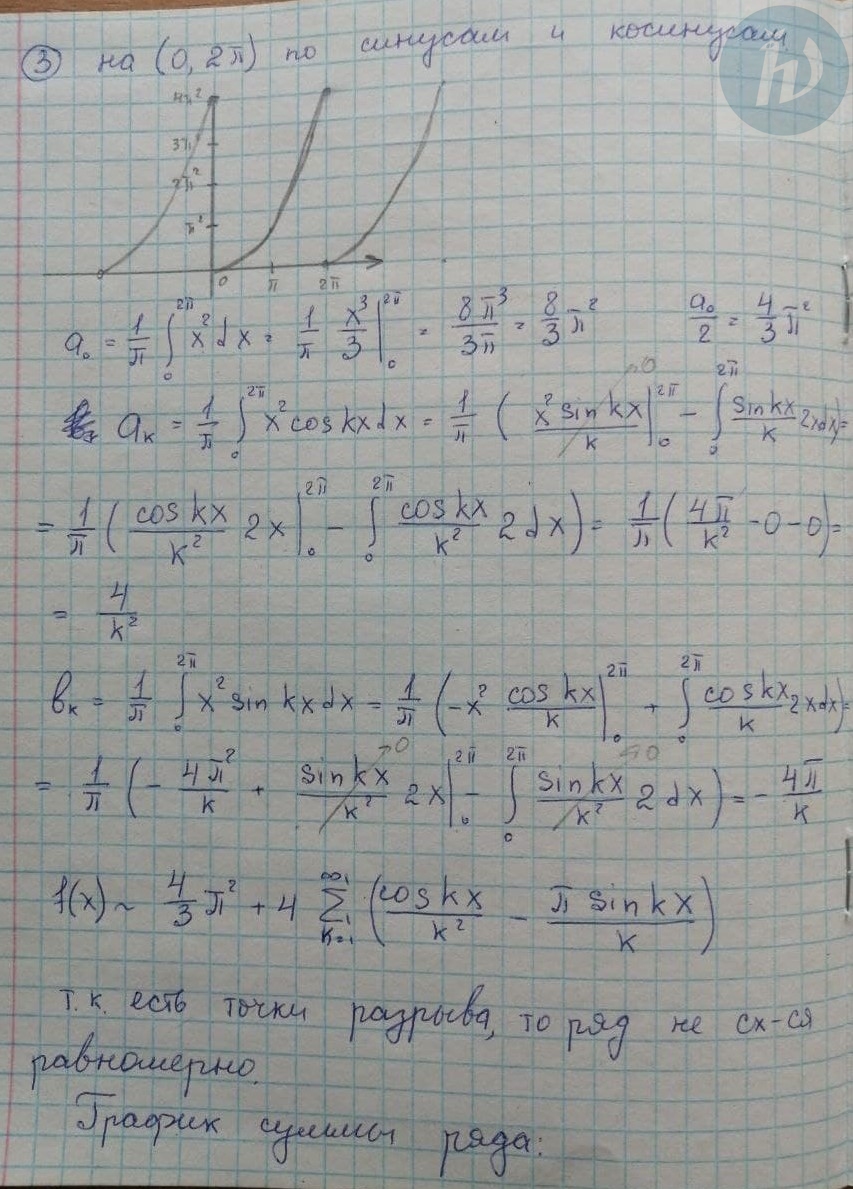 ③ на (0, 2π) по синусам и косинусам
4π²
3π²
2π²
π²
0 π 2π
a₀ = 1/π ∫₀^{2π} x² dx = 1/π x³/3 |₀^{2π} = 8π³/3π = 8/3 π² a₀/2 = 4/3 π²
aₖ = 1/π ∫₀^{2π} x² cos kx dx = 1/π ( x² sin kx/k |₀^{2π} →0 − ∫₀^{2π} sin kx/k 2x dx) =
= 1/π ( cos kx/k² 2x |₀^{2π} − ∫₀^{2π} cos kx/k² 2 dx ) = 1/π ( 4π/k² − 0 − 0) =
= 4/k²
bₖ = 1/π ∫₀^{2π} x² sin kx dx = 1/π (−x² cos kx/k |₀^{2π} + ∫₀^{2π} cos kx/k 2x dx) =
= 1/π (− 4π²/k + sin kx/k² →0 2x |₀^{2π} − ∫₀^{2π} sin kx/k² 2 dx =0 ) = − 4π/k
f(x) ~ 4/3 π² + 4 ∑_{k=1}^{∞} ( cos kx/k² − π sin kx/k )
т.к. есть точки разрыва, то ряд не сх-ся
равномерно.
График суммы ряда: